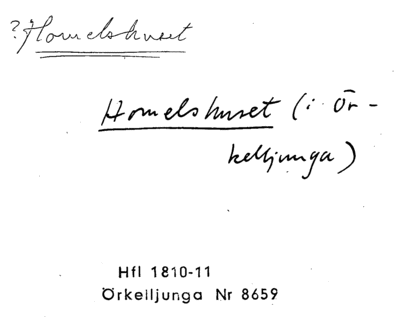 ?Homelshuset
Homelshuset (i Ör-
kelljunga)
Hfl 1810-11
Örkelljunga Nr 8659